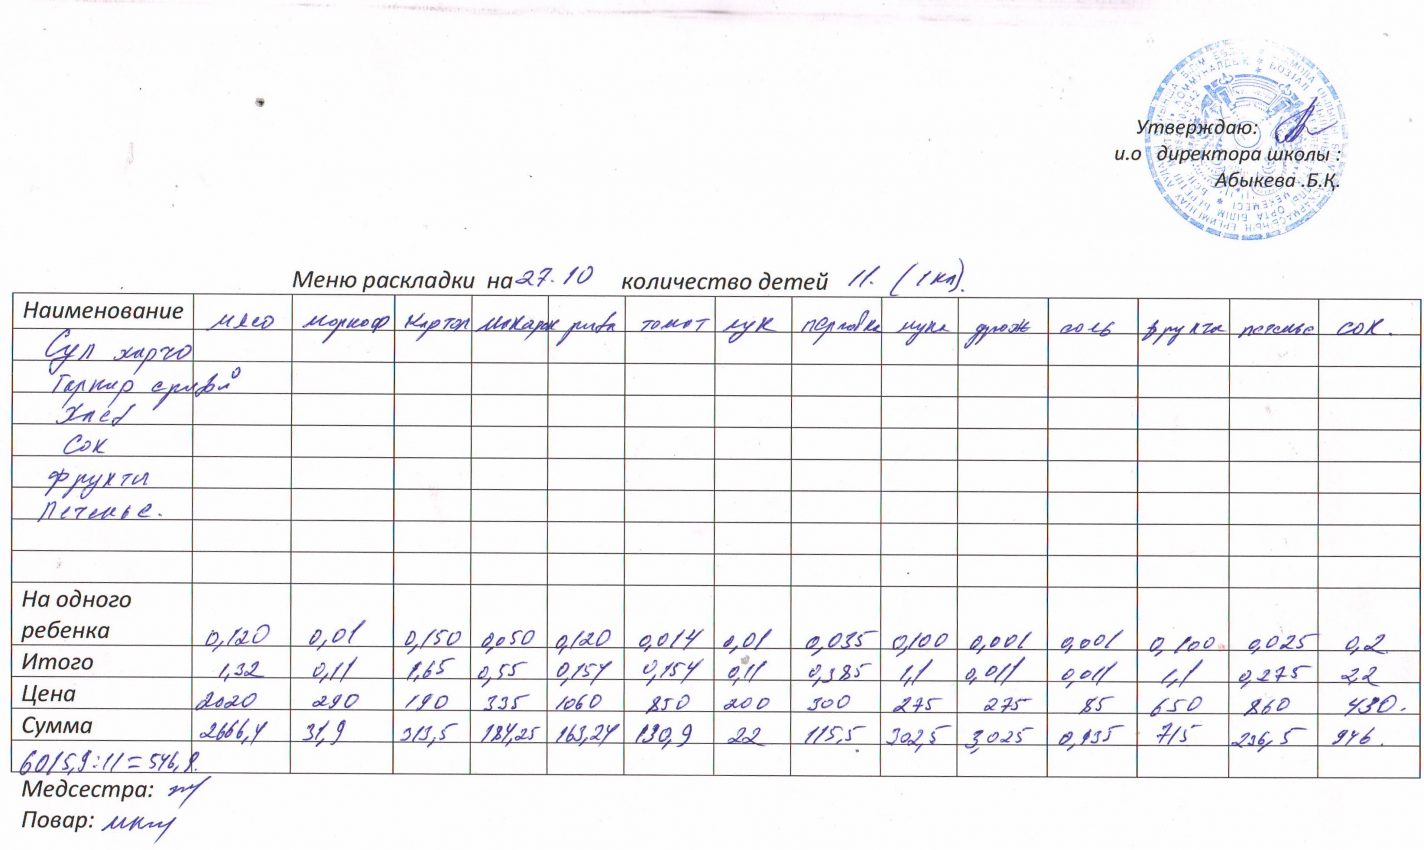 Утверждаю:
и.о директора школы :
Абыкева .Б.Қ.
Меню раскладки на 27.10 количество детей 11. (1 кл).
Наименование мясо моркоф картоп макарон рыба томот лук перловка мука дрож соль фрукты печенье сок.
Суп харчо
Гарнир с рыбой
Хлеб
Сок
Фрукты
Печенье.
На одного
ребенка 0,120 0,01 0,150 0,050 0,120 0,014 0,01 0,035 0,100 0,001 0,001 0,100 0,025 0,2
Итого 1,32 0,11 1,65 0,55 0,154 0,154 0,11 0,385 1,1 0,011 0,011 1,1 0,275 2,2
Цена 2020 290 190 335 1060 850 200 300 275 275 85 650 860 430.
Сумма 2666,4 31,9 313,5 184,25 163,24 130,9 22 115,5. 302,5 3,025 0,935 715 236,5 946.
6015,9:11=546,9.
Медсестра:
Повар: